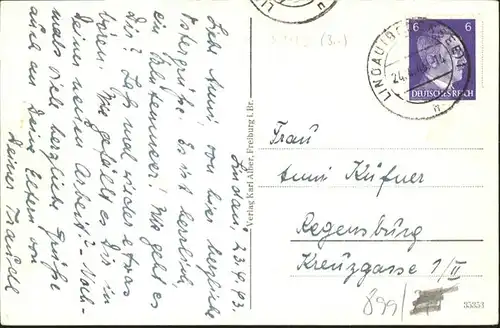 Lindau, 23.4.43.
Liebe Anni! Von hier herzliche
Ostergrüße. Es ist herrlich
am Bodensee! Wie geht es
Dir? Laß mal wieder etwas
hören. Wie gefällt es Dir in
Deiner neuen Arbeit? – Noch-
mals viele herzliche Grüße
auch an Deine Eltern von
Deiner Traudl
Verlag Karl Alber, Freiburg i. Br.
LINDAU (BODENSEE)
24.4.43.-14
n
6 6
DEUTSCHES REICH
Frau
Anni Küfner
Regensburg
Kreuzgasse 1/II
899/
35353